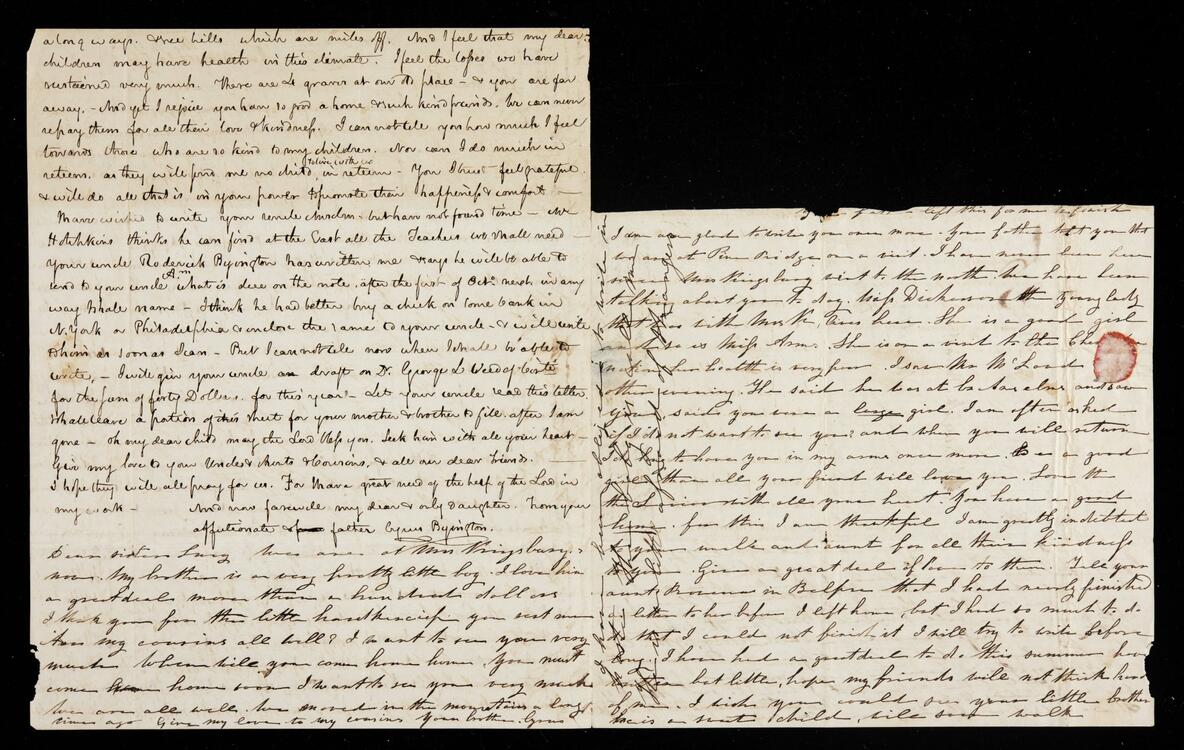 a long ways. & see hills which are miles off. And I feel that my dear
children may have health in this climate. I feel the losses we have
sustained very much. There are 4 graves at our old place - & you are far
away. - And yet I rejoice you have so good a home & such kind friends. We can never
repay them for all their love & kindness. I can not tell you how much I feel
towards those who are so kind to my children. Nor can I do much in
return. as they will send me no child to live with us in return - You I trust feel grateful
& will do all that is in your power to promote their happiness & comfort -
I have wished to write your uncle but have not found time - Mr
Hotchkins thinks he can find at the East all the Teachers we shall need -
your uncle Roderick Byington has written me & says he will be able to
send to your uncle Ami what is due on the note, after the first of Octr. next. in any
way I shall name - I think he had better buy a check on some bank in
N. York or Philadelphia & enclose the same to your uncle - & I will write
to him as soon as I can - But I can not tell now when I shall be able to
write, - I will give your uncle an draft on Dr. George L Weed of Cinti
for the sum of forty Dollars. for this year - Let your uncle read this letter.
I shall leave a portion of this sheet for your mother & brother to fill after I am
gone - oh my dear child may the Lord bless you. Seek him with all your heart -
Give my love to your Uncles & Aunts & Cousins, & all our dear Friends.
I hope they will all pray for us. For I have great need of the help of the Lord in
my work - And now farewell my dear & only daughter. From your
affectionate father Cyrus Byington.
Dear sister Lucy We are at Mrs Kingsburys
now. My brother is a very pretty little boy. I love him
a great deal more than a hundred dollars
I thank you for the little handkerchief you sent me
Are my cousins all well? I want to see you very
much When will you come home You must
come home soon I want to see you very much
We are all well. We moved in the mountains a long
times ago Give my love to my cousins Your brother Cyrus
left this for me to finish
I am glad to write you once more. Your father told you that
we are at Pine Ridge on a visit. I have never been here
since Mrs Kingsbury visit to the north. We have been
talking about you to day. Miss Dickinson the young lady
that was with Mrs K, lives here. She is a good girl
and so is Miss Arms. She is on a visit to the
nation her health is very poor. I saw Mr McLeod
other evening. He said he was at and saw
you, said you was a large girl. I am often asked
if I do not want to see you? and when you will return
to have you in my arms once more. Be a good
girl then all your friends will love you. Love the
the Saviour with all your heart You have a good
home. for this I am thankful I am greatly indebted
to your uncle and aunt for all their kindness
to you. Give a great deal of love to them. Tell your
aunt in Belpre that I had nearly finished
a letter to her before I left home, but I had so much to do
that I could not finish it I will try to write before
long I have had a great deal to do this summer have
written but little, hope my friends will not think hard
of me. I wish you could see your little brother
he is a sweet child, will soon walk